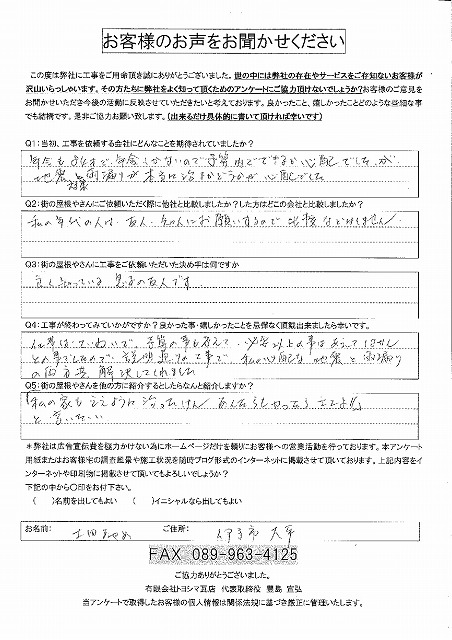 お客様のお声をお聞かせください
この度は弊社に工事をご用命頂き誠にありがとうございました。世の中には弊社の存在やサービスをご存知ないお客様が
沢山いらっしゃいます。その方たちに弊社をよく知って頂くためのアンケートにご協力頂けないでしょうか?お客様のご意見を
お聞かせいただき今後の活動に反映させていただきたいと考えております。良かったこと、嬉しかったことどのような些細な事
でも結構です。是非ご協力お願い致します。(出来るだけ具体的に書いて頂ければ幸いです)
Q1:当初、工事を依頼する会社にどんなことを期待されていましたか?
年金で 予算内でできるか心配でしたが
地震対策と雨漏りが本当に治るかどうかが心配でした
Q2:街の屋根やさんにご依頼いただく際に他社と比較しましたか?した方はどこの会社と比較しましたか?
私の年代の人は、友人、ちゃんにお願いするので比較などはしません
Q3:街の屋根やさんに工事をご依頼いただいた決め手は何ですか
良く知っている息子の友人です
Q4:工事が終わってみていかがですか?良かった事・嬉しかったことを忌憚なく頂戴出来ましたら幸いです。
仕事はていねいで、予算の事も考えて、必要以上の事はあえてしません
との事でしたので、説明通りの工事で、私の心配な地震と雨漏り
の両方共解決してくれました
Q5:街の屋根やさんを他の方に紹介するとしたらなんと紹介しますか?
「私の家もええように治ったけん、あんたもやってもらってよ!!」
と言いたい
＊弊社は広告宣伝費を極力かけない為にホームページだけを頼りにお客様への営業活動を行っております。本アンケート
用紙またはお客様宅の調査風景や施工状況を随時ブログ形式のインターネットに掲載させて頂いております。上記内容をイ
ンターネットや印刷物に掲載させて頂いてもよろしいでしょうか?
下記の中から〇印をお付下さい。
( )名前を出してもよい ( )イニシャルなら出してもよい
お名前: ご住所: 伊予市 大平
FAX 089-963-4125
ご協力ありがとうございました。
有限会社トヨシマ瓦店 代表取締役 豊島 宣弘
当アンケートで取得したお客様の個人情報は関係法規に基づき厳正に管理いたします。